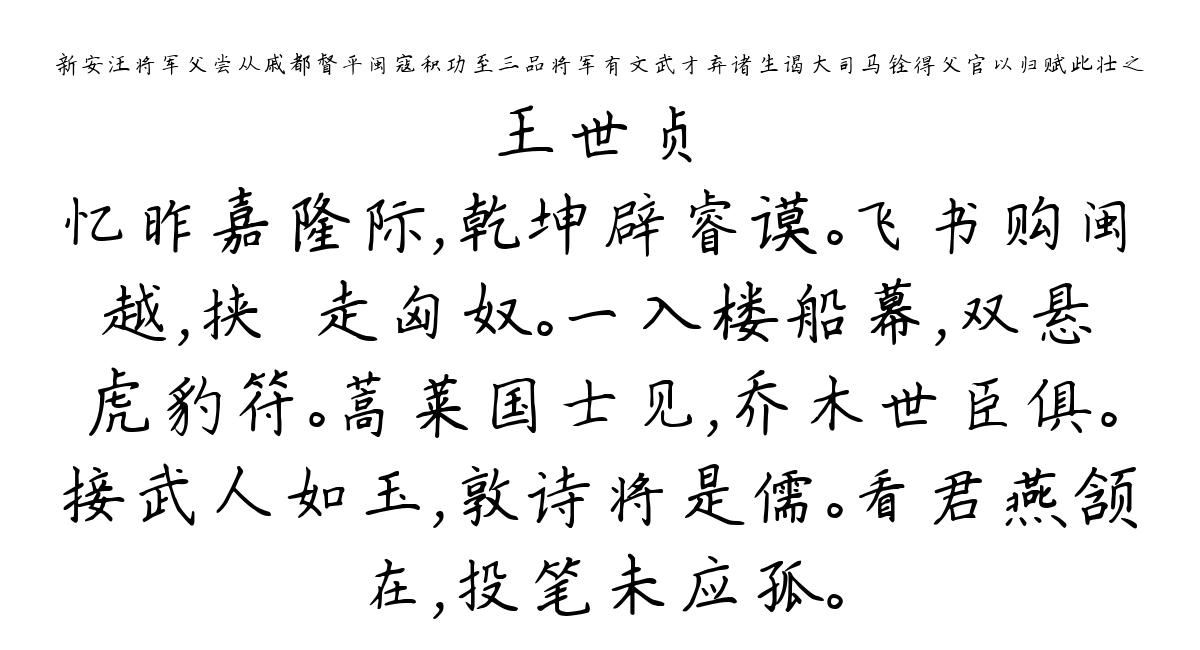 新安汪将军父尝从戚都督平闽寇积功至三品将军有文武才弃诸生谒大司马铨得父官以归赋此壮之
王世贞
忆昨嘉隆际,乾坤辟睿谟。飞书购闽
越,挟 走匈奴。一入楼船幕,双悬
虎豹符。蒿莱国士见,乔木世臣俱。
接武人如玉,敦诗将是儒。看君燕颔
在,投笔未应孤。